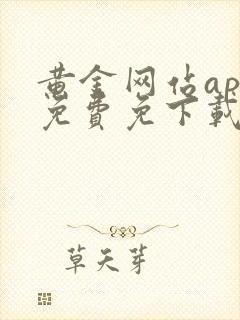 黄金网站ap
免費免下載
草天芽